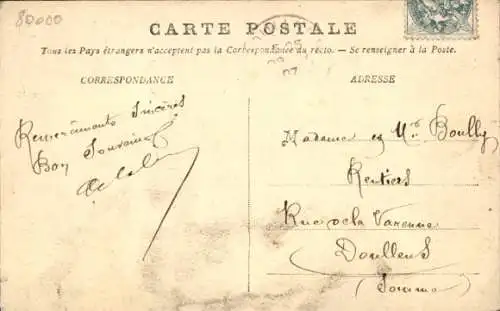 80000
CARTE POSTALE
Tous les Pays étrangers n'acceptent pas la Correspondance du recto. — Se renseigner à la Poste.
CORRESPONDANCE
ADRESSE
Remerciments Sincères
Bon Souvenir
Madame et Mr Boully
Rentiers
Rue de la Varenne
Doullens
(Somme)